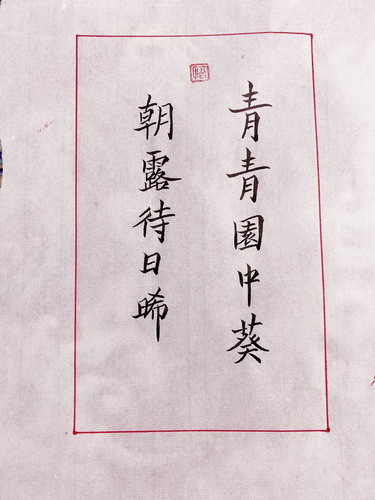 青青園中葵
朝露待日晞